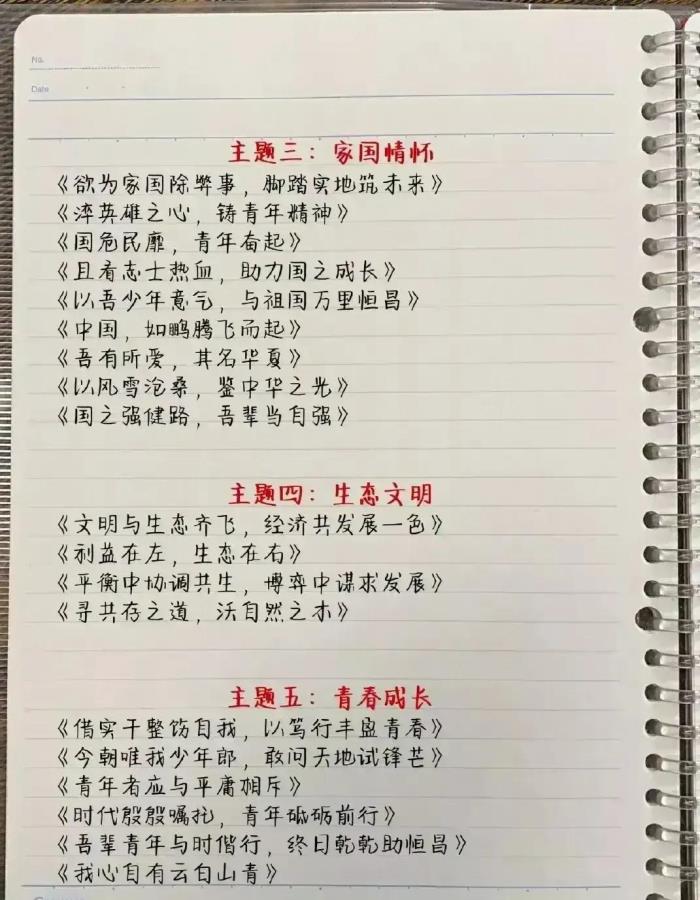 No.
Date
主题三：家国情怀
《欲为家国除弊事，脚踏实地筑未来》
《淬英雄之心，铸青年精神》
《国危民靡，青年奋起》
《且看志士热血，助力国之成长》
《以吾少年意气，与祖国万里恒昌》
《中国，如鹏腾飞而起》
《吾有所爱，其名华夏》
《以风雪沧桑，鉴中华之光》
《国之强健路，吾辈当自强》
主题四：生态文明
《文明与生态齐飞，经济共发展一色》
《利益在左，生态在右》
《平衡中协调共生，博弈中谋求发展》
《寻共存之道，沃自然之木》
主题五：青春成长
《借实干整饬自我，以笃行丰盈青春》
《今朝唯我少年郎，敢问天地试锋芒》
《青年者应与平庸相斥》
《时代殷殷嘱托，青年砥砺前行》
《吾辈青年与时偕行，终日乾乾助恒昌》
《我心自有云白山青》